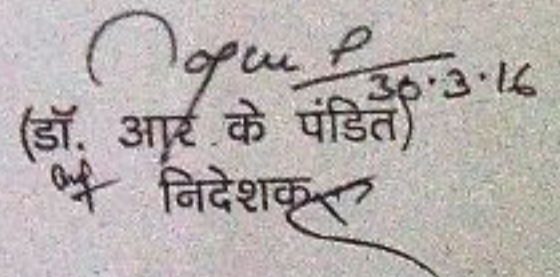 30.3.16
(डॉ. आर. के पंडित)
निदेशक